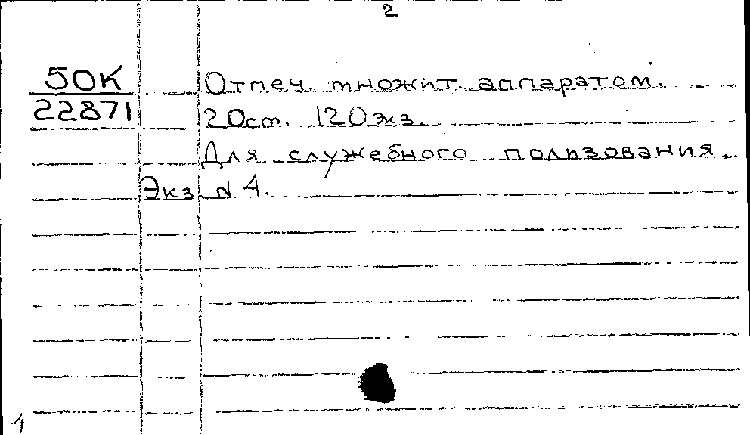 2
50К Отпеч. множит. аппаратом.
22871 20ст. 120экз.
Для служебного пользования.
Экз N 4.
1